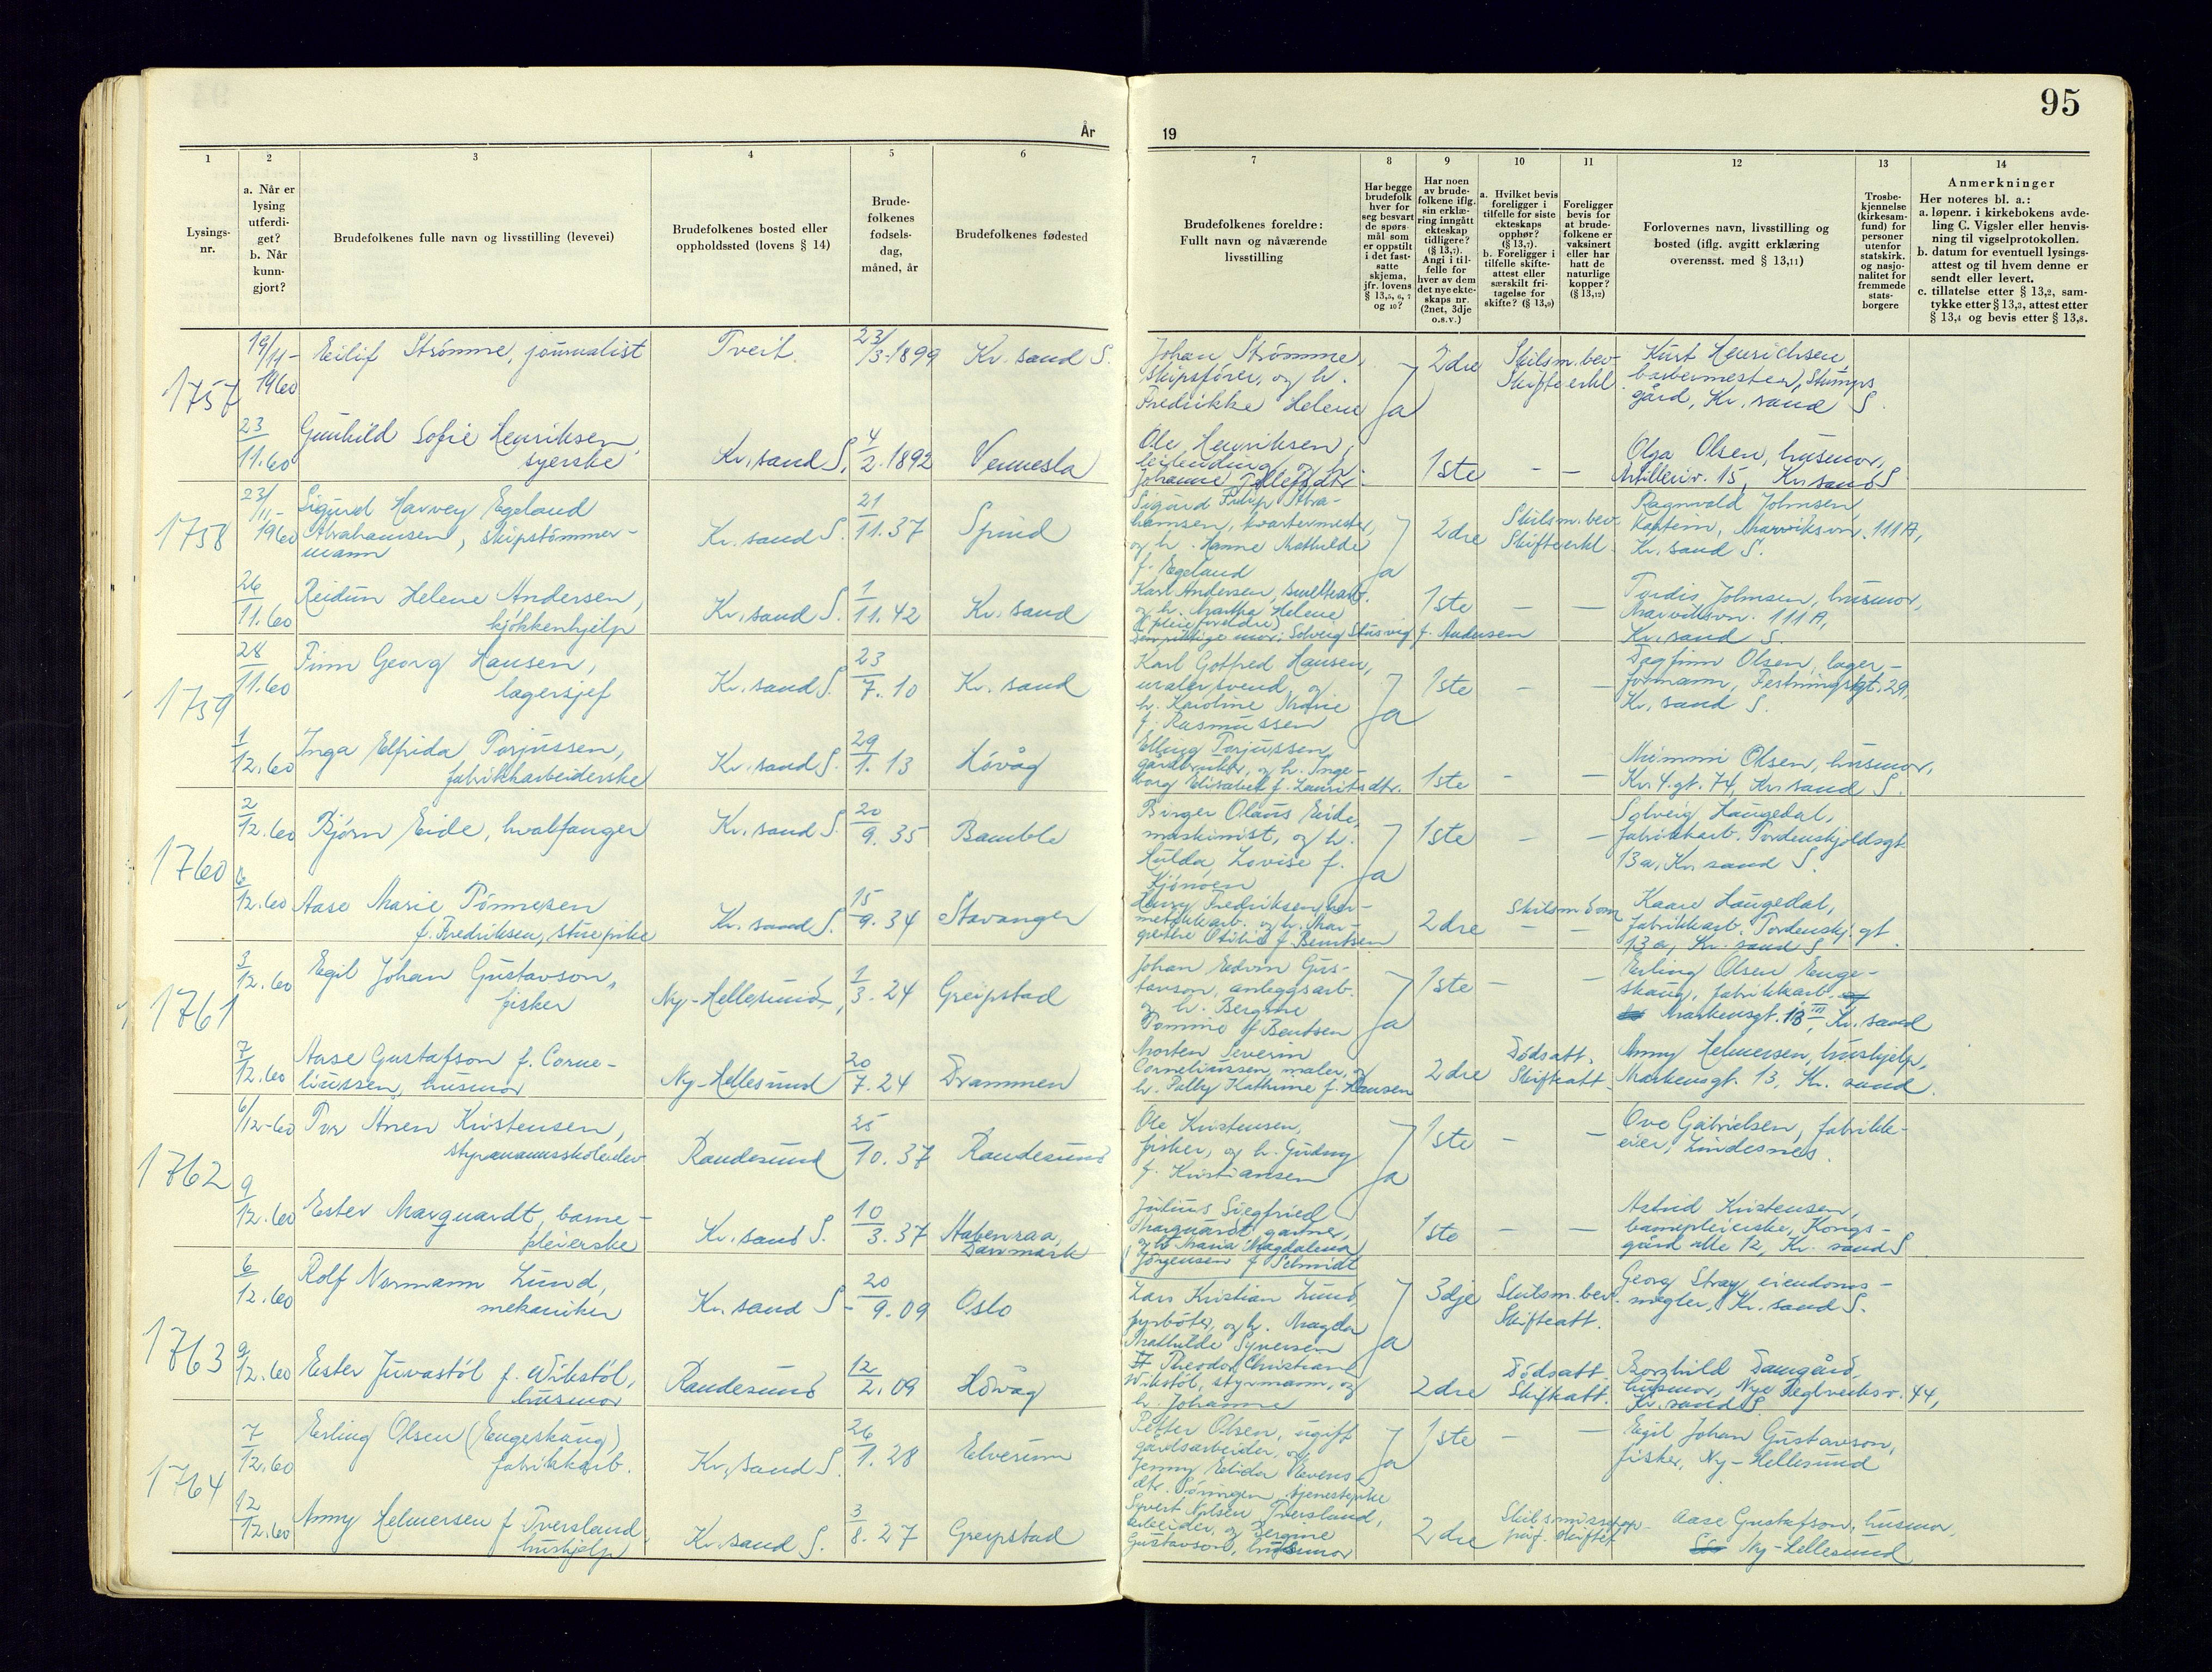 95
År
19
1
2
3
4
5
6
7
8
9
10
11
12
13
14
Lysings-
nr.
a. Når er
lysing
utferdi-
get?
b. Når
kunn-
gjort?
Brudefolkenes fulle navn og livsstilling (levevei)
Brudefolkenes bosted eller
oppholdssted (lovens § 14)
Brude-
folkenes
fødsels-
dag,
måned, år
Brudefolkenes fødested
Brudefolkenes foreldre:
Fullt navn og nåværende
livsstilling
Har begge
brudefolk
hver for
seg besvart
de spørs-
mål som
er oppstilt
i det fast-
satte
skjema,
jfr. lovens
§ 13,5, 6, 7
og 10?
Har noen
av brude-
folkene iflg.
sin erklæ-
ring inngått
ekteskap
tidligere?
(§ 13,7).
Angi i til-
felle for
hver av dem
det nye ekte-
skaps nr.
(2net, 3dje
o.s.v.)
a. Hvilket bevis
foreligger i
tilfelle for siste
ekteskaps
opphør?
(§ 13,7).
b. Foreligger i
tilfelle skifte-
attest eller
særskilt fri-
tagelse for
skifte? (§ 13,9)
Foreligger
bevis for
at brude-
folkene er
vaksinert
eller har
hatt de
naturlige
kopper?
(§ 13,12)
Forlovernes navn, livsstilling og
bosted (iflg. avgitt erklæring
overensst. med § 13,11)
Trosbe-
kjennelse
(kirkesam-
fund) for
personer
utenfor
statskirk.
og nasjo-
nalitet for
fremmede
stats-
borgere
Anmerkninger
Her noteres bl. a.:
a. løpenr. i kirkebokens avde-
ling C. Vigsler eller henvis-
ning til vigselprotokollen.
b. datum for eventuell lysings-
attest og til hvem denne er
sendt eller levert.
c. tillatelse etter § 13,2, sam-
tykke etter § 13,3, attest etter
§ 13,4 og bevis etter § 13,8.
1757
19/11-
1960
Eilif Strømme, journalist
Tveit.
23/3-1899
Kr. sand S.
Johan Strømme,
skipsfører, og h.
Fredrikke Helene
Ja
2dre
Skilsm. bev.
Skifteerkl.
Kurt Henrichsen
barbermester, Stumps
gård, Kr. sand S.
23
11.60
Gunhild Sofie Henriksen,
syerske
Kr. sand S.
4
2.1892
Vennesla
Ole Henriksen,
og h.
Johanne Tollefsdtr.
1ste
- -
Olga Olsen, husmor,
Artilleriv. 15, Kr. sand S
1758
23/11-
1960
Sigurd Harvey Egeland
Abrahamsen, skipstømmer-
mann
Kr. sand S.
21
11.37
Spind
Sigurd Filip Abra-
hamsen, kvartermester,
og h. Hanne Mathilde
f. Egeland
Ja
2dre
Skilsm. bev.
Skifteerkl.
Ragnvald Johnsen,
Kaptein, Marviksvn. 111A,
Kr. sand S.
26
11.60
Reidun Helene Andersen,
kjøkkenhjelp
Kr. sand S.
1
11.42
Kr. sand
Karl Andersen, smeltearb.
og h. Martha Helene
(pleieforeldre)
Den riktige mor: Solveig Stusvig f. Andersen
1ste
- -
Tordis Johnsen, husmor,
Marviksvn. 111A,
Kr. sand S.
1759
28
11.60
Finn Georg Hansen,
lagersjef
Kr. sand S.
23
7.10
Kr. sand
Karl Gotfred Hansen,
malersvend, og
h. Karoline Marie
f. Rasmussen
Ja
1ste
- -
Dagfinn Olsen, lager-
formann, Festningsgt. 29,
Kr. sand S.
1
12.60
Inga Elfrida Torjussen,
fabrikkarbeiderske
Kr. sand S.
29
1.13
Høvåg
Elling Torjussen,
gårdbruker, og h. Inge-
borg Elisabet f. Lauritsdtr.
1ste
- -
Mimmi Olsen, husmor,
Kr. 4. gt. 74, Kr. sand S.
1760
2
12.60
Bjørn Eide, hvalfanger
Kr. sand S.
20
9.35
Bamble
Birger Olaus Eide,
maskinist, og h.
Hulda Lovise f.
Ja
1ste
- -
Solveig Haugedal,
fabrikkarb. Tordenskjoldsgt.
13a, Kr. sand S.
6
12.60
Aase Marie Tønnesen
f. Fredriksen, stuepike
Kr. sand S.
15
9.34
Stavanger
Fredriksen, her-
metikkarb. og h. Mar-
grethe Otilie f. Berntsen
2dre
Skilsm dom
- -
Kaare Haugedal,
fabrikkarb. Tordenskj. gt
13a, Kr. sand S
1761
3
12.60
Egil Johan Gustavson,
fisker
Ny-Hellesund,
1
3.24
Greipstad
Johan Edvin Gus-
tavson, anleggsarb.
og h. Bergine
Tomine f. Bentsen
Ja
1ste
- -
Erling Olsen Enge-
skaug, fabrikkarb.
Markensgt. 13 III, Kr. sand
7
12.60
Aase Gustafson f. Corne-
liussen, husmor
Ny-Hellesund
20
7.24
Drammen
Morten Severin
Corneliussen, maler, og
h. Palby Kathrine f. Hansen
2dre
Dødsatt.
Skifteatt.
Anny Helmersen, hushjelp,
Markensgt. 13, Kr. sand.
1762
6/12-60
Tor Anen Kristensen,
styrmannsskoleelev
Randesund
25
10.37
Randesund
Ole Kristensen,
fisker, og h. Gudny
f. Kristiansen
Ja
1ste
- -
Ove Gabrielsen, fabrikk-
eier, Lindesnes.
9
12.60
Ester Marquardt, barne-
pleierske
Kr. sand S.
10
3.37
Aabenraa,
Danmark
Julius Siegfried
Marquardt, gartner,
og h. Maria Magdalena
Jörgensen f. Schmidt
1ste
- -
Astrid Kristensen,
barnepleierske, Kongs-
gård alle 12, Kr. sand S
1763
6
12.60
Rolf Normann Lund,
mekaniker
Kr. sand S
20
9.09
Oslo
Lars Kristian Lund,
fyrbøter, og h. Magda
Mathilde Syversen
Ja
3dje
Skilsm. bev.
Skifteatt.
Georg Stray, eiendoms-
megler, Kr. sand S.
9
12.60
Ester Juvastøl f. Wikstøl,
husmor
Randesund
12
2.09
Høvåg
Theodor Christian
Wikstøl, styrmann, og
h. Johanne
2dre
Dødsatt.
Skifteatt.
Borghild Damgård,
husmor, Nye Teglverksv. 44,
Kr. sand S
1764
7
12.60
Erling Olsen (Engeskaug)
fabrikkarb.
Kr. sand S.
26
1.28
Elverum
Petter Olsen, ugift
gårdsarbeider, og
Jenny Elida Evens-
dtr. tjenestepike
Ja
1ste
- -
Egil Johan Gustavson,
fisker, Ny-Hellesund
12
12.60
Anny Helmersen f. Tversland
hushjelp
Kr. sand S.
3
8.27
Greipstad
Syvert Nilsen Tversland,
arbeider, og Bergine
Gustavson, husmor
2dre
Aase Gustafson, husmor,
Ny-Hellesund